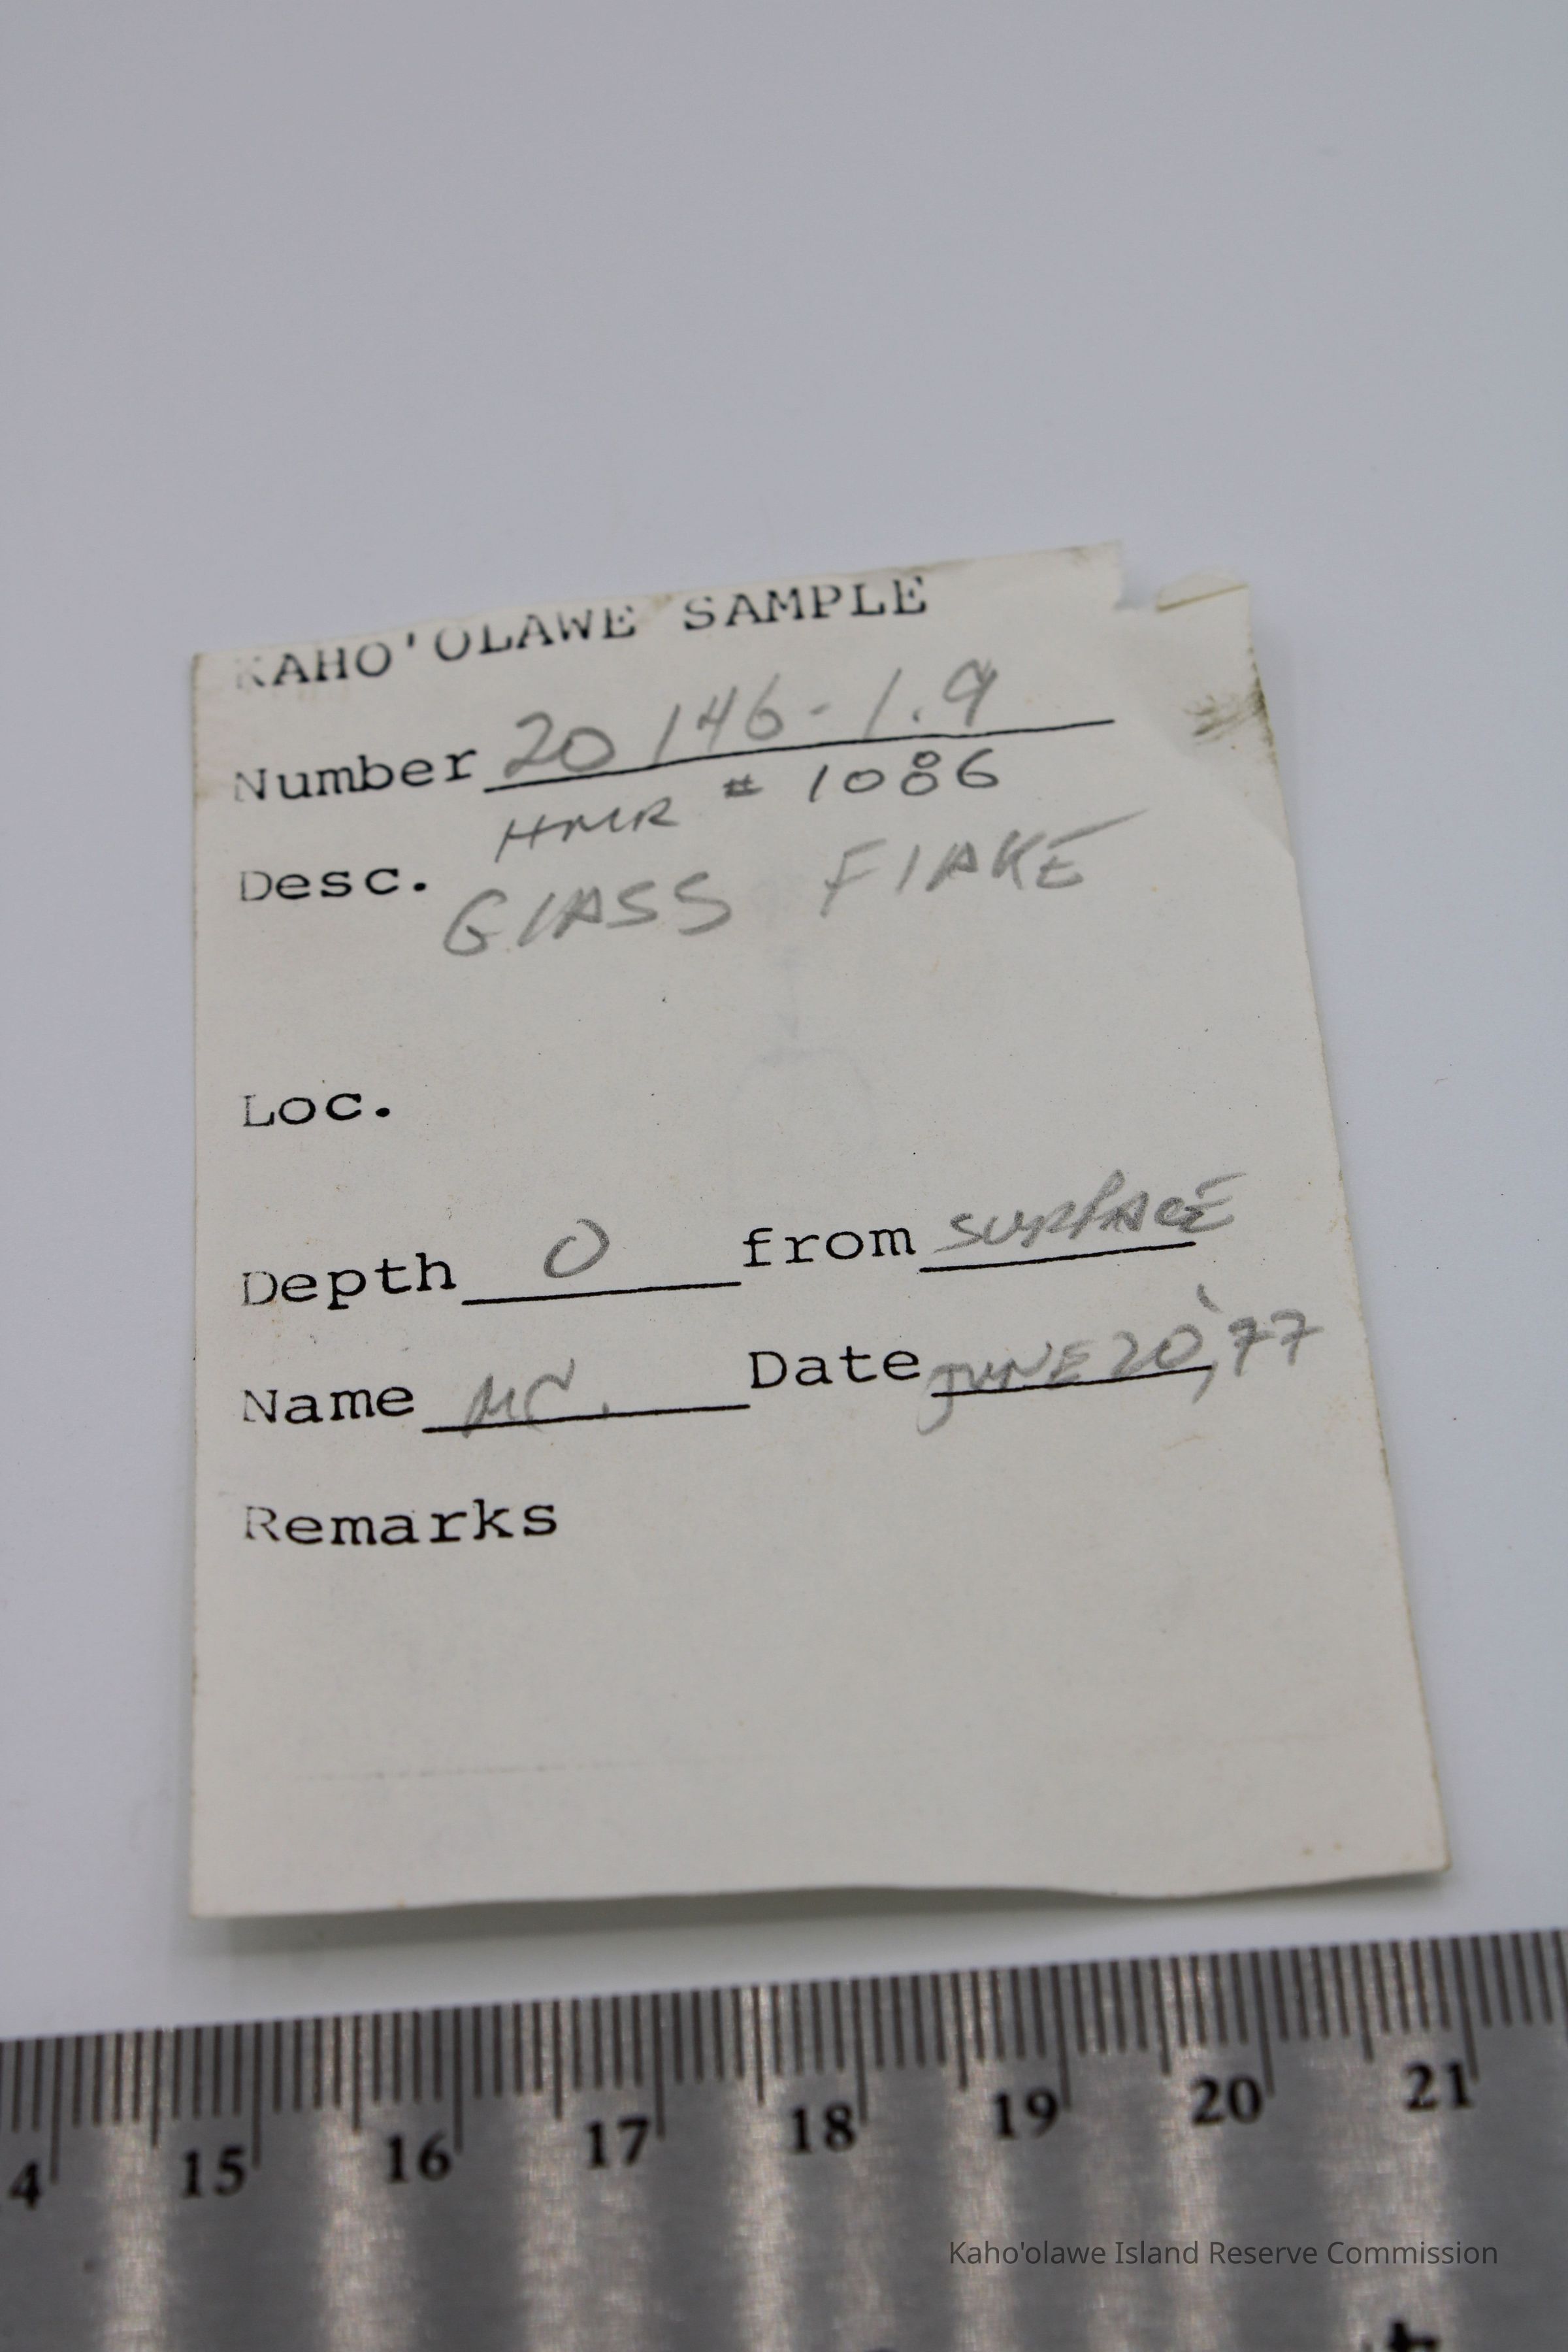 KAHO'OLAWE SAMPLE
Number 20 146-1.9
HMR # 1086
Desc. GlASS FlAKE
Loc.
Depth 0 from SURFACE
Name MC. Date JUNE 20, '77
Remarks
4 15 16 17 18 19 20 21
Kaho'olawe Island Reserve Commission